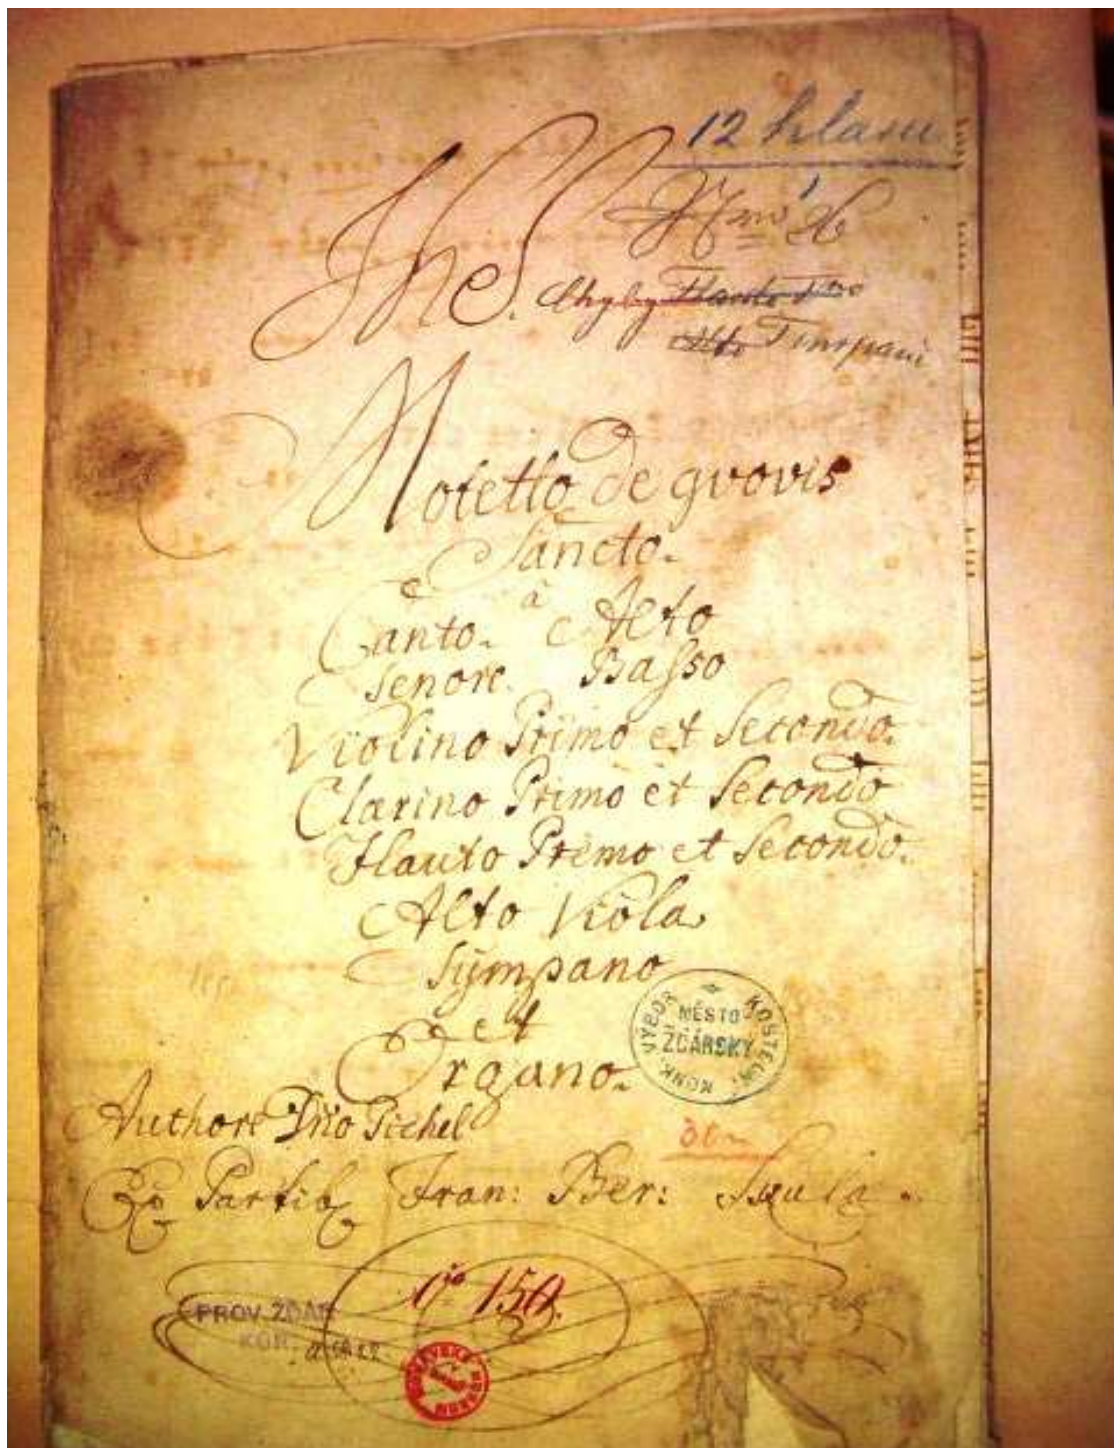 12 hlasů
JHS. Chyby Flauto
Alto Timpani
Motetto de quovis
Sancto.
à
Canto. Alto
Tenore. Basso
Violino Primo et Secondo.
Clarino Primo et Secondo
Flauto Primo et Secondo.
Alto Viola
Tÿmpano
et
Organo.
KONK. VÝBOR KOSTELN.
MĚSTO
ŽĎÁRSKÝ
Authore Dno Pichel
Partib Fran: Ber: Skula.
150.
PROV. ŽĎÁR
KOR.